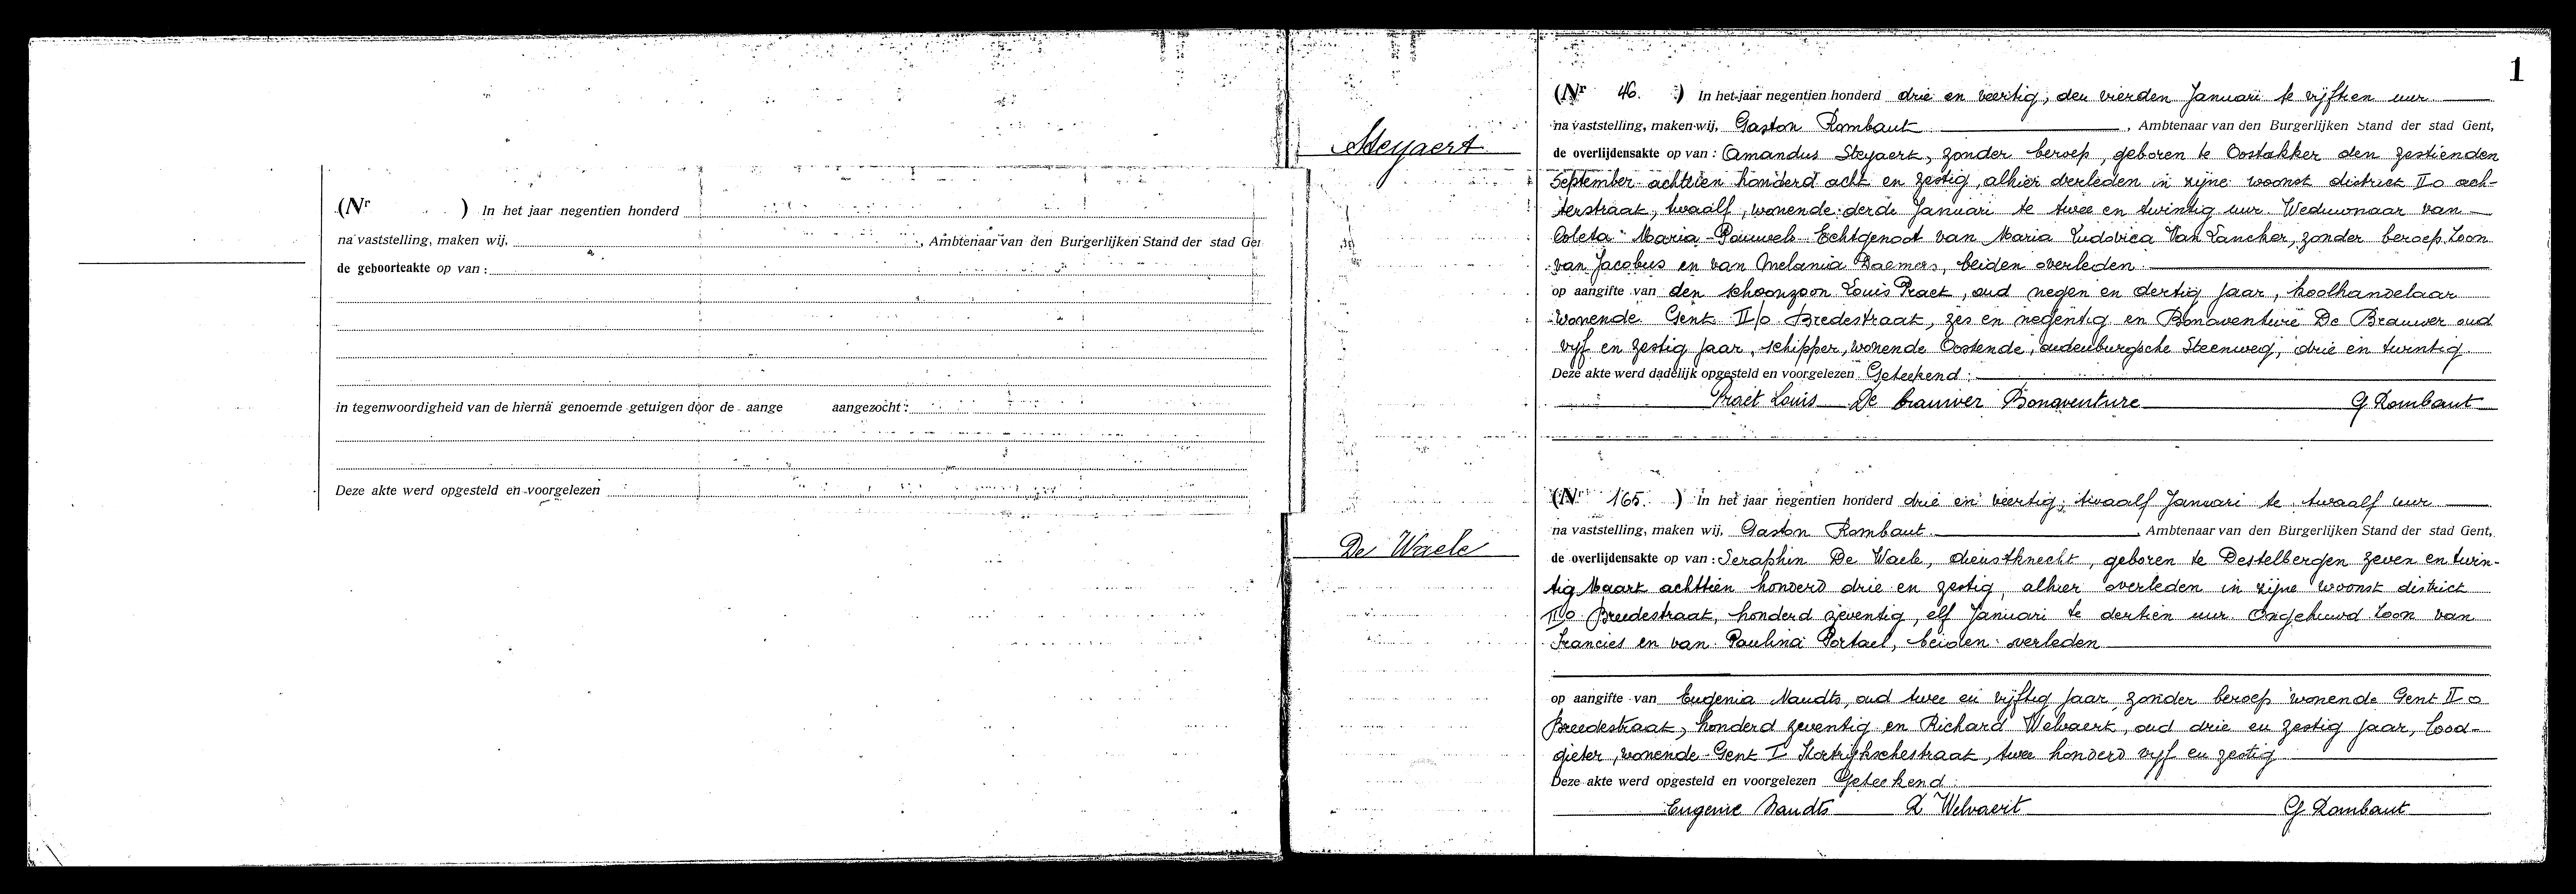 (Nr ) In het jaar negentien honderd
na vaststelling, maken wij, , Ambtenaar van den Burgerlijken Stand der stad Ge
de geboorteakte op van :
in tegenwoordigheid van de hierna genoemde getuigen door de aange aangezocht :
Deze akte werd opgesteld en voorgelezen
1
Steyaert
(Nr 46. ) In het jaar negentien honderd drie en veertig, den vierden Januari te vijftien uur
na vaststelling, maken wij, Gaston Rombaut , Ambtenaar van den Burgerlijken Stand der stad Gent,
de overlijdensakte op van : Amandus Steyaert, zonder beroep, geboren te Oostakker den zestienden
September achttien honderd acht en zestig, alhier overleden in zijne woonst district II o ach-
terstraat, twaalf, wonende derde Januari te twee en twintig uur. Weduwnaar van
Coleta Maria Pauwels Echtgenoot van Maria Ludovica Van Lancker, zonder beroep. Zoon
van Jacobus en van Melania Daemers, beiden overleden.
op aangifte van den schoonzoon Louis Praet, oud negen en dertig jaar, koolhandelaar
wonende Gent II/o Bredestraat, zes en negentig en Bonaventure De Brauwer oud
vijf en zestig jaar, schipper, wonende Oostende, oudenburgsche Steenweg, drie en twintig.
Deze akte werd dadelijk opgesteld en voorgelezen Geteekend :
Praet Louis De brauwer Bonaventure G Rombaut
De Waele
(Nr 165. ) In het jaar negentien honderd drie en veertig, twaalf Januari te twaalf uur
na vaststelling, maken wij, Gaston Rombaut. , Ambtenaar van den Burgerlijken Stand der stad Gent,
de overlijdensakte op van : Seraphin De Waele, dienstknecht, geboren te Destelbergen zeven en twin-
tig Maart achttien honderd drie en zestig, alhier overleden in zijne woonst district
II o Breedestraat, honderd zeventig, elf Januari te dertien uur. Ongehuwd Zoon van
Francies en van Paulina Portael, beiden overleden
op aangifte van Eugenia Naudts, oud twee en vijftig jaar, zonder beroep wonende Gent II o
Breedestraat, honderd zeventig en Richard Welvaert, oud drie en zestig jaar, lood-
gieter, wonende Gent I Kortrijkschestraat, twee honderd vijf en zestig
Deze akte werd opgesteld en voorgelezen Geteekend :
Eugenie Naudts R Welvaert G Rombaut